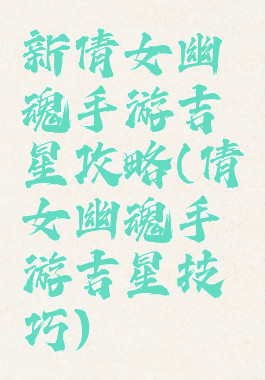 新倩女幽
魂手游吉
星攻略(倩
女幽魂手
游吉星技
巧)